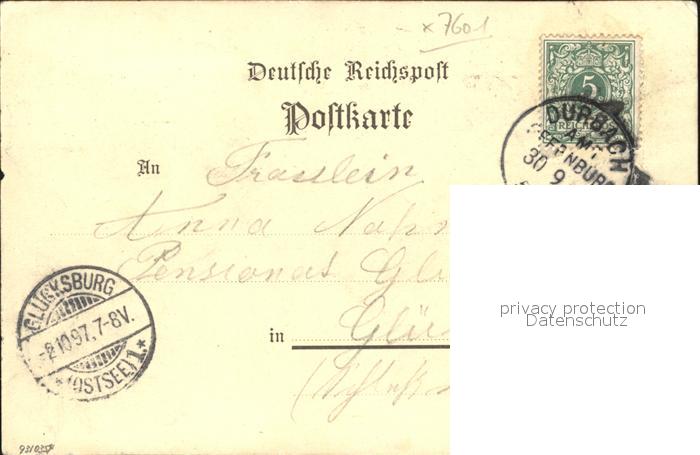 x 7601
Deutsche Reichspost
Postkarte
5
REICHS
DURBACH
AMT
OFFENBURG
30 9
An Fräulein
Anna
Pensionat
in
GLÜCKSBURG
-2 10 97. 7-8V.
*(OSTSEE)1.*
privacy protection
Datenschutz